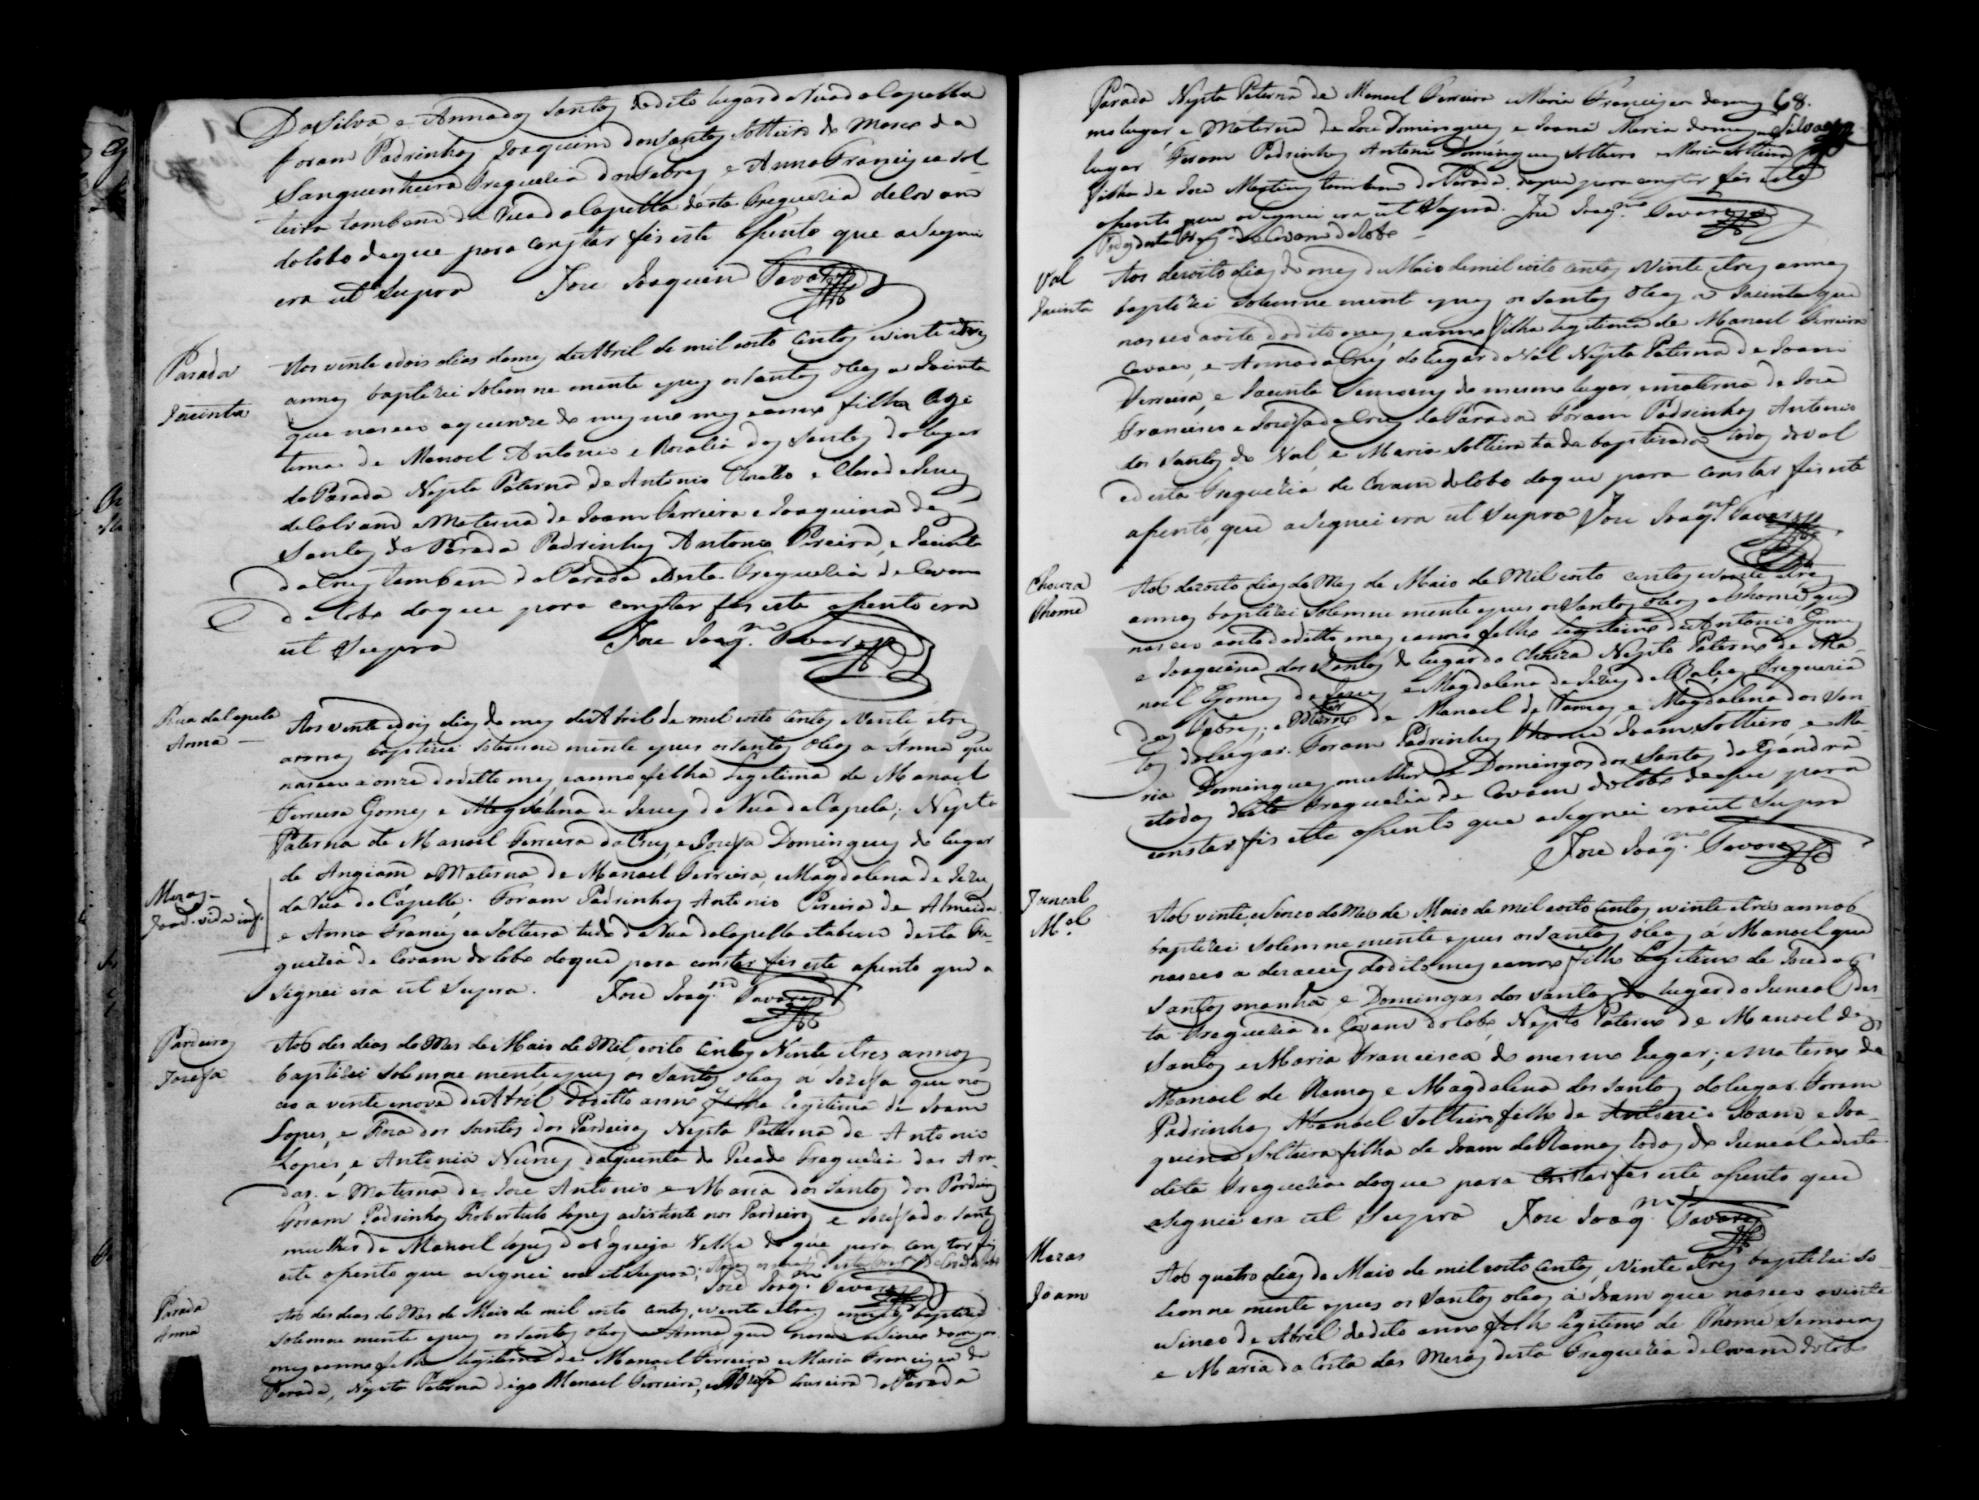 Da Silva, e Anna dos Santos do dito lugar da Rua da Capella
foram Padrinhos Joaquim dos Santos Solteiro do
Sanguenheira Freguezia dos Febres, e Anna Francisca sol-
teira tambem da Rua da Capella desta Freguezia de Covam
do lobo do que para constar fis este Asento que asignei
era ut Supra José Joaquim Tavares
Parada
Jacinta
Aos vinte e dois dias do mes de Abril de mil oito centos e vinte e tres
annos baptizei solemne mente e pus os Santos Oleos a Jacinta
que nasceo a quinze do mesmo mes e anno filha legi-
tima de Manoel Antonio e Rozalia dos Santos do lugar
da Parada Nepta Paterna de Antonio e Clara de Jesus
de Covam e Materna de Joam Ferreira e Joaquina dos
Santos da Parada Padrinhos Antonio Pereira, e Jacinta
da Crus tambem da Parada desta Freguezia de Covam
do Lobo do que para constar fis este asento era
ut Supra José Joaq.m Tavares
Rua da Capela
Anna
Aos vinte e dois dias do mes de Abril de mil oito centos e Vinte e tres
annos baptizei solemne mente e pus os Santos Oleos a Anna que
nasceo a onze do ditto mes e anno filha Legitima de Manoel
Ferreira Gomes e Magdalena de Jesus da Rua da Capela; Nepta
Paterna de Manoel Ferreira da Crus, e Josefa Domingues do lugar
de Angiam e Materna de Manoel Ferreira, e Magdalena de Jezus
da Rua da Capella. Foram Padrinhos Antonio Pereira de Almeida
e Anna Francisca Solteira tudo da Rua da Capella desta Fre-
guezia de Covam do lobo do que para constar fis este asento que a
signei era ut Supra. José Joaq.m Tavares
Mezas
Joam
Pardeiros
Josefa
Aos des dias do Mes de Maio de Mil oito centos Vinte e tres annos
baptizei solemne mente e pus os Santos Oleos a Jozefa que nas
ceo a vinte e nove de Abril do ditto anno filha legitima de Joam
Lopes, e Roza dos Santos dos Pardeiros Nepta Paterna de Antonio
Lopes, e Antonia Nunes da quinta do Picado Freguezia das Ara-
das. e Materna de José Antonio e Maria dos Santos dos Pardeiros
Foram Padrinhos Robertulo Lopes asistente nos Pardeiros e Jozefa dos Santos
mulher de Manoel Lopes da Igreija Velha do que para constar fis
este asento que asignei era ut supra;
José Joaq.m Tavares
Parada
Anna
Aos des dias do Mes de Maio de mil oito centos, e vinte e tres annos baptizei
solemne mente e pus os Santos Oleos a Anna que nasceo a sinco do mesmo
mes e anno filha legitima de Manoel Ferreira e Maria Francisca da
Parada, Nepta Paterna digo Manoel Ferreira, e Josefa Loureira da Parada
68.
Parada Nepta Paterna de Manoel Ferreira e Maria Francisca do mes
mo lugar e Materna de José Domingues, e Joana Maria do mesmo
lugar Foram Padrinhos Antonio Domingues Solteiro e Maria Solteira
filha de José Martins tambem da Parada. do que para constar fis este
asento que asignei era ut Supra. José Joaq.m Tavares
Todos desta Freg.a de Covam do Lobo
Val
Jacinta
Aos dezoito dias do mes de Maio de mil oito centos e Vinte e tres annos
baptizei solemne mente e pus os santos oleos a Jacinta que
nasceo a oito do dito mes, e anno filha legitima de Manoel Ferreira
e Anna da Crus do lugar do Val Nepta Paterna de Joam
Ferreira, e Jacinta Simoens do mesmo lugar, e materna de José
Francisco e Josefa da Crus da Parada Foram Padrinhos Antonio
dos Santos do Val, e Maria Solteira tia da baptizada todos do Val
e desta Freguezia de Covam do lobo do que para constar fis este
asento, que asignei era ut Supra José Joaq.m Tavares
Chouza
Thomé
Aos dezoito dias do Mes de Maio de Mil oito centos e vinte e tres
annos baptizei Solemne mente e pus os Santos Oleos a Thomé, que
nasceo a oito do ditto mes, e anno filho Legitimo de Antonio Gomes
e Joaquina dos Santos do lugar da Choiza Nepto Paterno de Ma-
noel Gomes de Jesus e Magdalena de Jezus do Balsa Freguezia
dos Febres; e Materno de Manoel de Ramos, e Magdalena dos San-
tos do lugar. Foram Padrinhos Joam Solteiro, e Ma-
ria Domingues mulher de Domingos dos Santos da Gandra
e todos desta Freguezia de Covam do lobo do que para
constar fis este asento que asignei era ut Supra
José Joaq.m Tavares
Juncal
M.el
Aos vinte, e sinco do Mes de Maio de mil oito centos e vinte e tres annos
baptizei Solemne mente e pus os Santos Oleos a Manoel que
nasceo a dezaceis do dito mes e anno filho Legitimo de José dos
Santos manha, e Domingas dos Santos do lugar do Juncal des-
ta Freguezia de Covam do lobo, Nepto Paterno de Manoel dos
Santos e Maria Francisca do mesmo lugar; e materno de
Manoel de Ramos e Magdalena dos Santos do lugar. Foram
Padrinhos Manoel Solteiro filho de Antonio Joam e Joa-
quina Solteira filha de Joam de Ramos todos do Juncal e desta
dita Freguezia do que para constar fis este asento que
asignei era ut Supra José Joaq.m Tavares
Mezas
Joam
Aos quatro dias de Maio de mil oito centos, Vinte e tres baptizei so-
lemne mente e pus os Santos oleos a Joam que nasceo a vinte
e sinco de Abril do dito anno filho legitimo de Thomé Simoens
e Maria da Costa das Mezas desta Freguezia de Covam do lobo